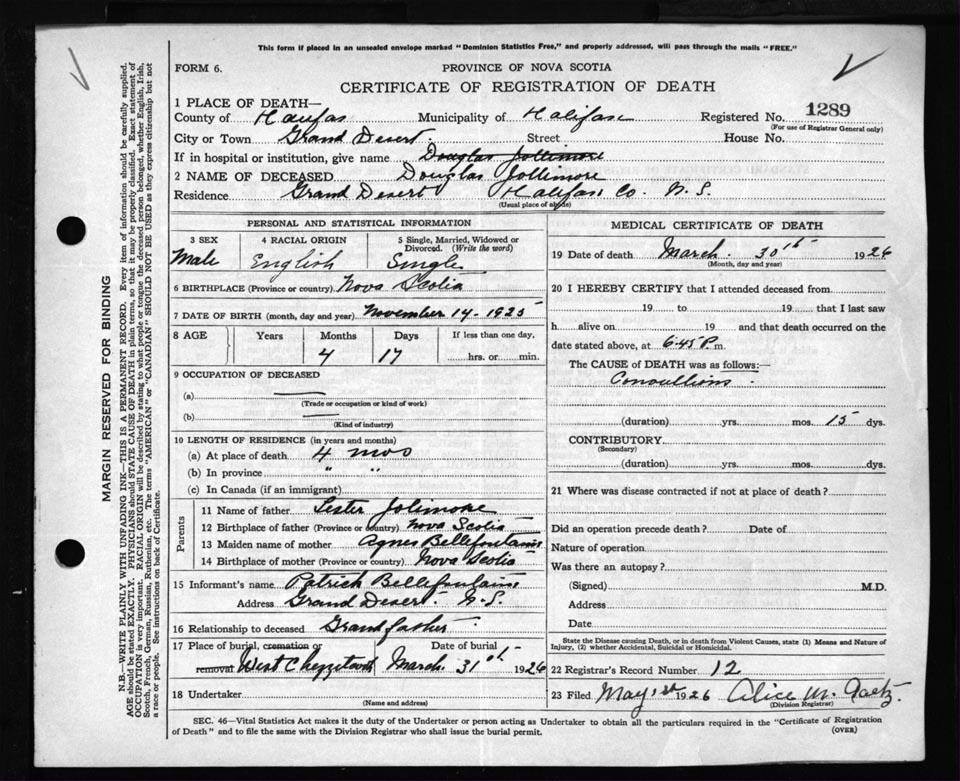 This form if placed in an unsealed envelope marked "Dominion Statistics Free," and properly addressed, will pass through the mails "FREE."
FORM 6.
PROVINCE OF NOVA SCOTIA
CERTIFICATE OF REGISTRATION OF DEATH
1 PLACE OF DEATH—
County of Haufas Municipality of Halifax Registered No. 1289
(For use of Registrar General only)
City or Town Grand Desert. Street House No.
If in hospital or institution, give name Douglas Jollimore
2 NAME OF DECEASED Douglas Jollimore
Residence Grand Desert Halifax Co. N.S.
(Usual place of abode)
PERSONAL AND STATISTICAL INFORMATION
3 SEX 4 RACIAL ORIGIN 5 Single, Married, Widowed or Divorced. (Write the word)
Male English Single
6 BIRTHPLACE (Province or country) Nova Scotia
7 DATE OF BIRTH (month, day and year) November 14-1925
8 AGE Years Months Days If less than one day,
4 17 hrs. or min.
9 OCCUPATION OF DECEASED
(a) —
(Trade or occupation or kind of work)
(b) —
(Kind of industry)
10 LENGTH OF RESIDENCE (in years and months)
(a) At place of death 4 mos
(b) In province " "
(c) In Canada (if an immigrant)
Parents
11 Name of father Lester Jolimore
12 Birthplace of father (Province or country) Nova Scotia
13 Maiden name of mother Agnes Bellefontaine
14 Birthplace of mother (Province or country) Nova Scotia
15 Informant's name Patrick Bellefontaine
Address Grand Desert. N.S.
16 Relationship to deceased Grandfather
17 Place of burial, cremation or removal Date of burial
West Chezzetcook March 31st 1926
18 Undertaker
(Name and address)
MEDICAL CERTIFICATE OF DEATH
19 Date of death March. 30th 1926
(Month, day and year)
20 I HEREBY CERTIFY that I attended deceased from
19 to 19 that I last saw
h alive on 19 and that death occurred on the
date stated above, at 6:45 P. m.
The CAUSE of DEATH was as follows:—
Convultions.
(duration) yrs. mos. 15 dys.
CONTRIBUTORY
(Secondary)
(duration) yrs. mos. dys.
21 Where was disease contracted if not at place of death?
Did an operation precede death? Date of
Nature of operation
Was there an autopsy?
(Signed) M.D.
Address
Date
State the Disease causing Death, or in death from Violent Causes, state (1) Means and Nature of
Injury, (2) whether Accidental, Suicidal or Homicidal.
22 Registrar's Record Number 12
23 Filed May 1st 1926 Alice M. Gaetz.
(Division Registrar)
SEC. 46—Vital Statistics Act makes it the duty of the Undertaker or person acting as Undertaker to obtain all the particulars required in the "Certificate of Registration
of Death" and to file the same with the Division Registrar who shall issue the burial permit. (OVER)
MARGIN RESERVED FOR BINDING
N.B.—WRITE PLAINLY WITH UNFADING INK—THIS IS A PERMANENT RECORD. Every item of information should be carefully supplied.
AGE should be stated EXACTLY. PHYSICIANS should STATE CAUSE OF DEATH in plain terms, so that it may be properly classified. Exact statement of
OCCUPATION is very important. RACIAL ORIGIN will be described by stating to what people or tongue the deceased person belonged, whether English, Irish,
Scotch, French, German, Russian, Ruthenian, etc. The terms "AMERICAN" or "CANADIAN" SHOULD NOT BE USED as they express citizenship but not
a race or people. See instructions on back of Certificate.